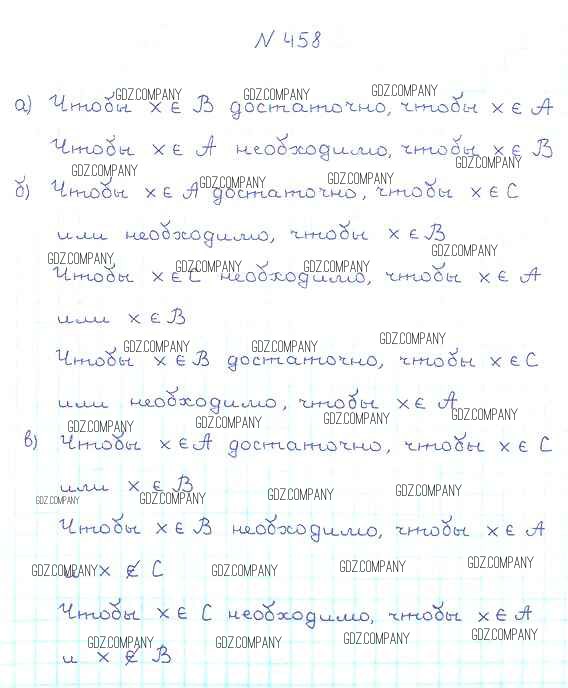 N 458
а) Чтобы x ∈ B достаточно, чтобы x ∈ A
Чтобы x ∈ A необходимо, чтобы x ∈ B
б) Чтобы x ∈ A достаточно, чтобы x ∈ C
или необходимо, чтобы x ∈ B
Чтобы x ∈ C необходимо, чтобы x ∈ A
или x ∈ B
Чтобы x ∈ B достаточно, чтобы x ∈ C
или необходимо, чтобы x ∈ A
в) Чтобы x ∈ A достаточно, чтобы x ∈ C
или x ∈ B
Чтобы x ∈ B необходимо, чтобы x ∈ A
и x ∉ C
Чтобы x ∈ C необходимо, чтобы x ∈ A
и x ∉ B
GDZ.COMPANY GDZ.COMPANY GDZ.COMPANY
GDZ.COMPANY GDZ.COMPANY GDZ.COMPANY GDZ.COMPANY
GDZ.COMPANY GDZ.COMPANY GDZ.COMPANY GDZ.COMPANY
GDZ.COMPANY GDZ.COMPANY GDZ.COMPANY
GDZ.COMPANY GDZ.COMPANY GDZ.COMPANY GDZ.COMPANY
GDZ.COMPANY GDZ.COMPANY GDZ.COMPANY GDZ.COMPANY
GDZ.COMPANY GDZ.COMPANY GDZ.COMPANY GDZ.COMPANY
GDZ.COMPANY GDZ.COMPANY GDZ.COMPANY GDZ.COMPANY